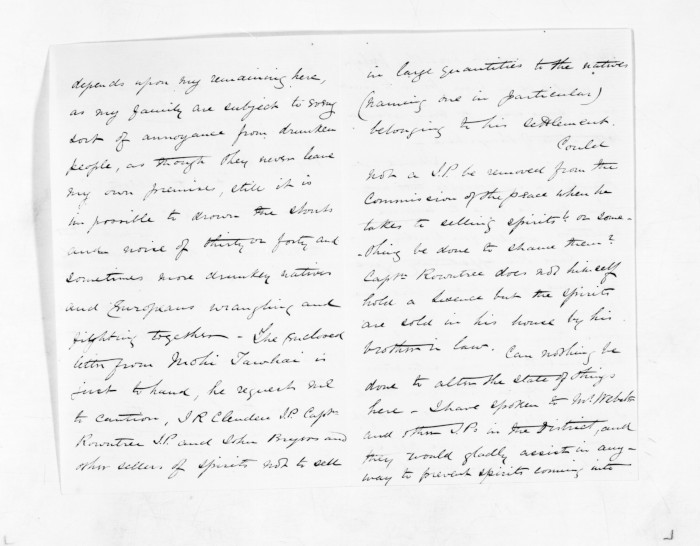 depends upon my remaining here,
as my family are subject to every
sort of annoyance from drunken
people, as though they never leave
my own premises, still it is
impossible to drown the shouts
and noise of thirty or forty and
sometimes more drunken natives
and Europeans wrangling and
fighting together – The enclosed
letter from Mohi Tawhai is
just to hand, he requests me
to caution, J R Clendon J.P. Captn
Rowntree J.P and John Bryers and
other sellers of spirits not to sell
in large quantities to the natives
(naming one in particular)
belonging to his settlement.
Could
not a J.P. be removed from the
Commission of the peace when he
takes to selling spirits? or some-
-thing be done to shame them?
Captn Rowntree does not himself
hold a licence but the spirits
are sold in his house by his
brother in law. Can nothing be
done to alter the state of things
here – I have spoken to Mr. Webster
and other J.P.s in the District, and
they would gladly assist in any-
way to prevent spirits coming into